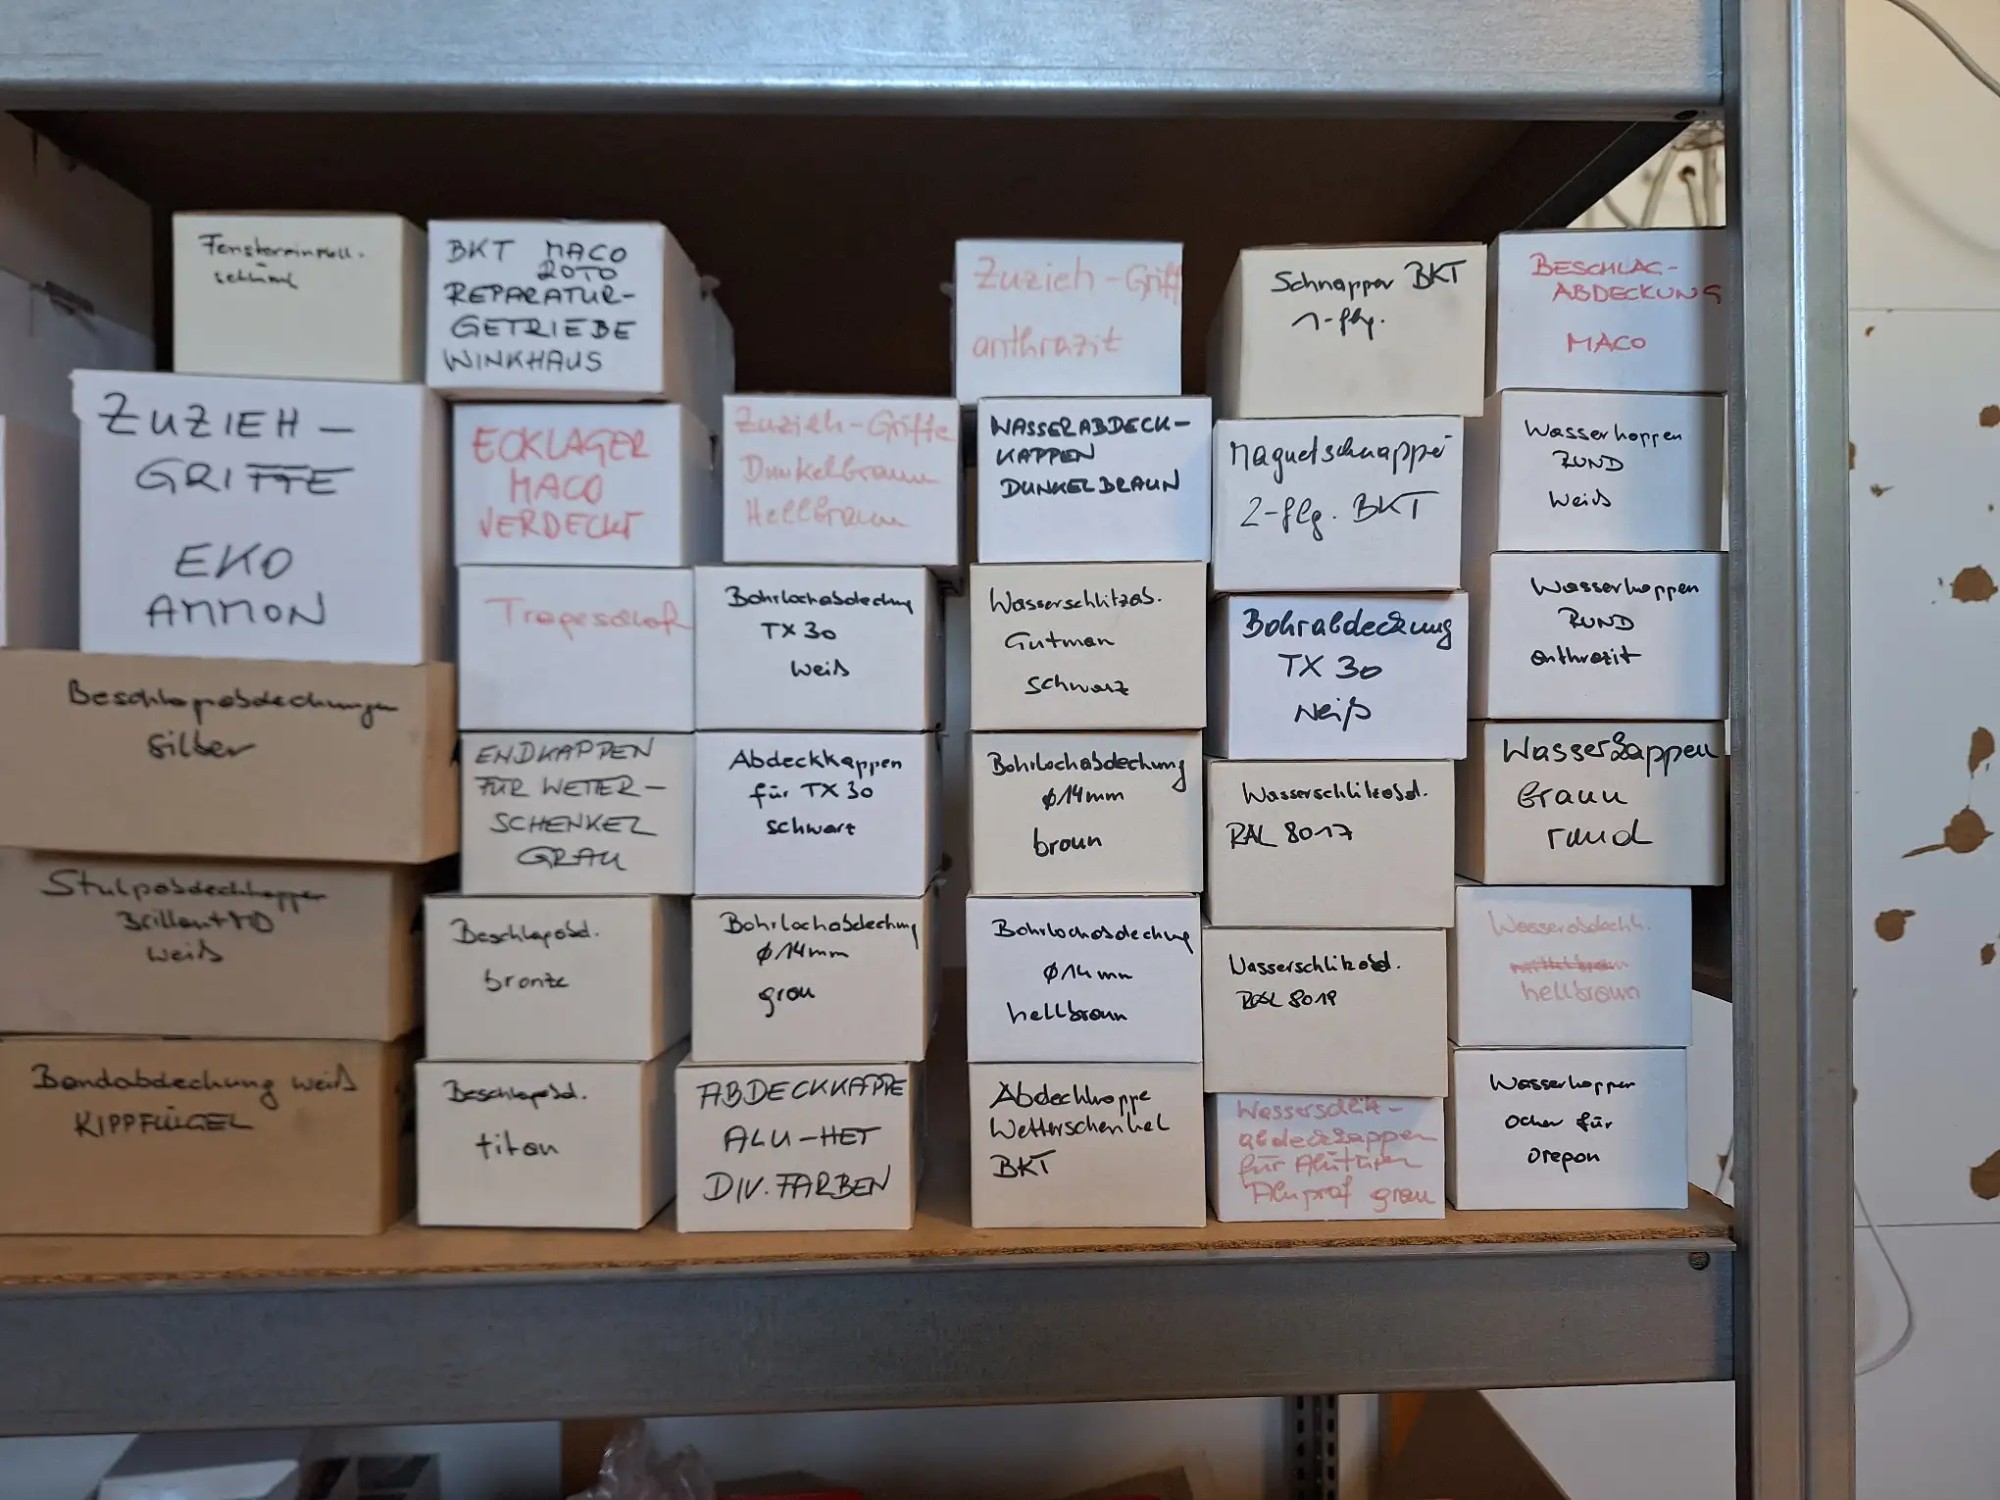 BKT MACO
ROTO
REPARATUR-
GETRIEBE
WINKHAUS
Zuzieh-Griff
anthrazit
Schnapper BKT
1-flg.
BESCHLAG-
ABDECKUNG
MACO
ZUZIEH-
GRIFFE
EKO
AMMON
ECKLAGER
MACO
VERDECKT
Zuzieh-Griffe
Dunkelbraun
Hellbraun
WASSERABDECK-
KAPPEN
DUNKELBRAUN
Magnetschnapper
2-flg. BKT
Wasserkappen
RUND
weiß
Bohrlochabdeckung
TX 30
weiß
Wasserschlitzab.
Gutman
schwarz
Bohrabdeckung
TX 30
Weiß
Wasserkappen
RUND
anthrazit
Beschlagabdeckungen
silber
ENDKAPPEN
FÜR WETTER-
SCHENKEL
GRAU
Abdeckkappen
für TX 30
schwarz
Bohrlochabdeckung
ø 14mm
braun
Wasserschlitzabd.
RAL 8017
Wasserkappen
Braun
rund
Stulpabdeckkappen
Brillant MD
weiß
Beschlagabd.
bronze
Bohrlochabdeckung
ø 14mm
grau
Bohrlochabdeckung
ø 14mm
hellbraun
Wasserschlitzabd.
RAL 8019
Wasserabdeckk.
hellbraun
Bandabdeckung weiß
KIPPFLÜGEL
Beschlagabd.
titan
ABDECKKAPPE
ALU-HET
DIV. FARBEN
Abdeckkappe
Wetterschenkel
BKT
Wasserschlitz-
abdeckkappen
für Alutüren
Aluprof grau
Wasserkappen
ocker für
oregon